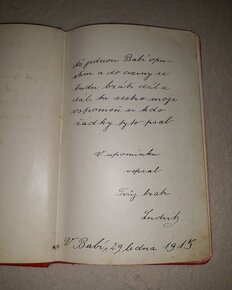 Až jednou Babí opu-
stím a do ciziny se
budu bráti dál a
dál, tu sestro moje
vzpomeň si kdo
řádky tyto psal
V upomínku
vepsal
Tvůj bratr
Ludvík
V Babí, 29 ledna 1915